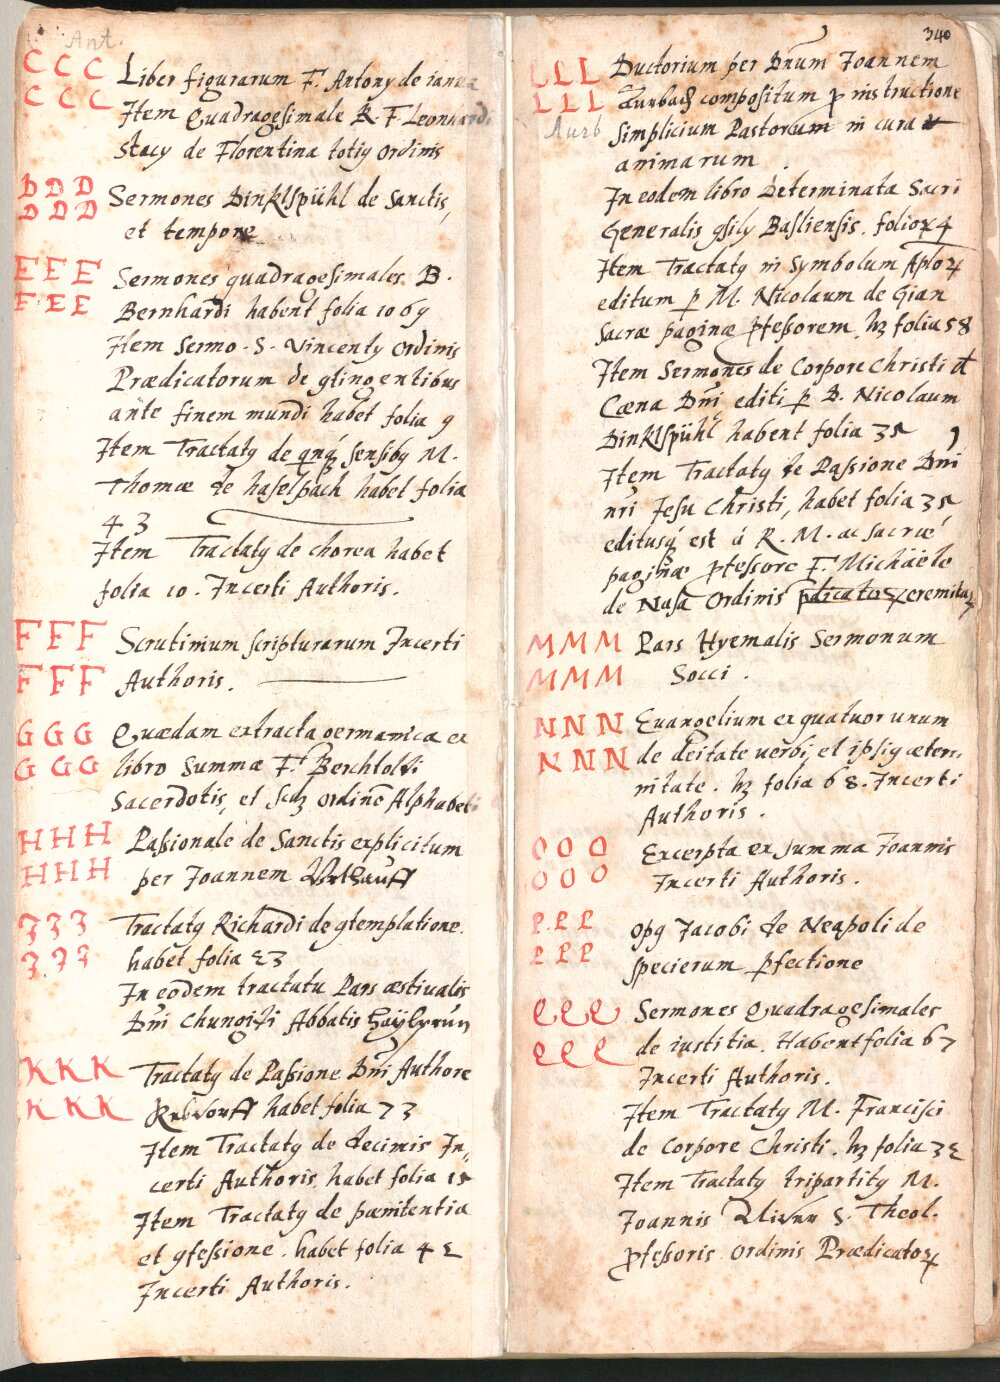 Ant.
C C C
C C C
Liber figurarum F. Antony de ianua
Item Quadragesimale R. F. Leonhardi
Stacy de Florentina totiq ordinis
D D D
D D D
Sermones Dinklspühl de Sanctis,
et tempore
E E E
E E E
Sermones quadragesimales. B.
Bernhardi habent folia 1069
Item Sermo. S. Vincenty Ordinis
Prædicatorum de gtingentibus
ante finem mundi habet folia 9
Item Tractatq de qnq sensibq M.
Thomæ de haselpach habet folia
43
Item Tractatq de chorea habet
folia 10. Incerti Authoris.
F F F
F F F
Scrutinium scripturarum Incerti
Authoris.
G G G
G G G
Quædam extracta germanica ex
libro Summæ F. Berchtoldi
Sacerdotis, et scdz ordine Alphabeti
H H H
H H H
Passionale de Sanctis explicitum
per Joannem
J J J
J J J
Tractatq Richardi de gtemplatione.
habet folia 23
In eodem tractatu Pars æstiualis
Dni Abbatis
K K K
K K K
Tractatq de Passione Dni Authore
habet folia 73
Item Tractatq de decimis In,,
certi Authoris, habet folia 15
Item Tractatq de pænitentia
et gfessione. habet folia 42
Incerti Authoris.
340
L L L
L L L
Aurb
Ductorium per Dnum Joannem
Aurbach compositum p instructione
Simplicium Pastorum in cura
animarum.
In eodem libro Determinata Sacri
Generalis gsily Basliensis. folio 24
Item Tractatq in Symbolum Aplo4
editum p M. Nicolaum de Gian
Sacræ paginæ pfessorem. hz folia 58
Item Sermones de Corpore Christi et
Cæna Dni editi p B. Nicolaum
Dinklspühl habent folia 35
Item Tractatq de Passione Dni
nri Jesu Christi, habet folia 35
editusq est á R. M. ac sacræ
paginæ pfessore F. Michäele
de Nusa Ordinis pdicatoz eremitaz
M M M
M M M
Pars Hyemalis Sermonum
Socci.
N N N
N N N
Euangelium ex quatuor unum
de deitate uerbi, et ipsiq æter,,
nitate. hz folia 68. Incerti
Authoris.
O O O
O O O
Excerpta ex summa Joannis
Incerti Authoris.
P P P
P P P
Opq Jacobi de Neapoli de
specierum pfectione
Q Q Q
Q Q Q
Sermones Quadragesimales
de iustitia. Habent folia 67
Incerti Authoris.
Item Tractatq M. Francisci
de Corpore Christi. hz folia 32
Item Tractatq tripartitq M.
Joannis S. Theol.
pfessoris Ordinis Prædicato4